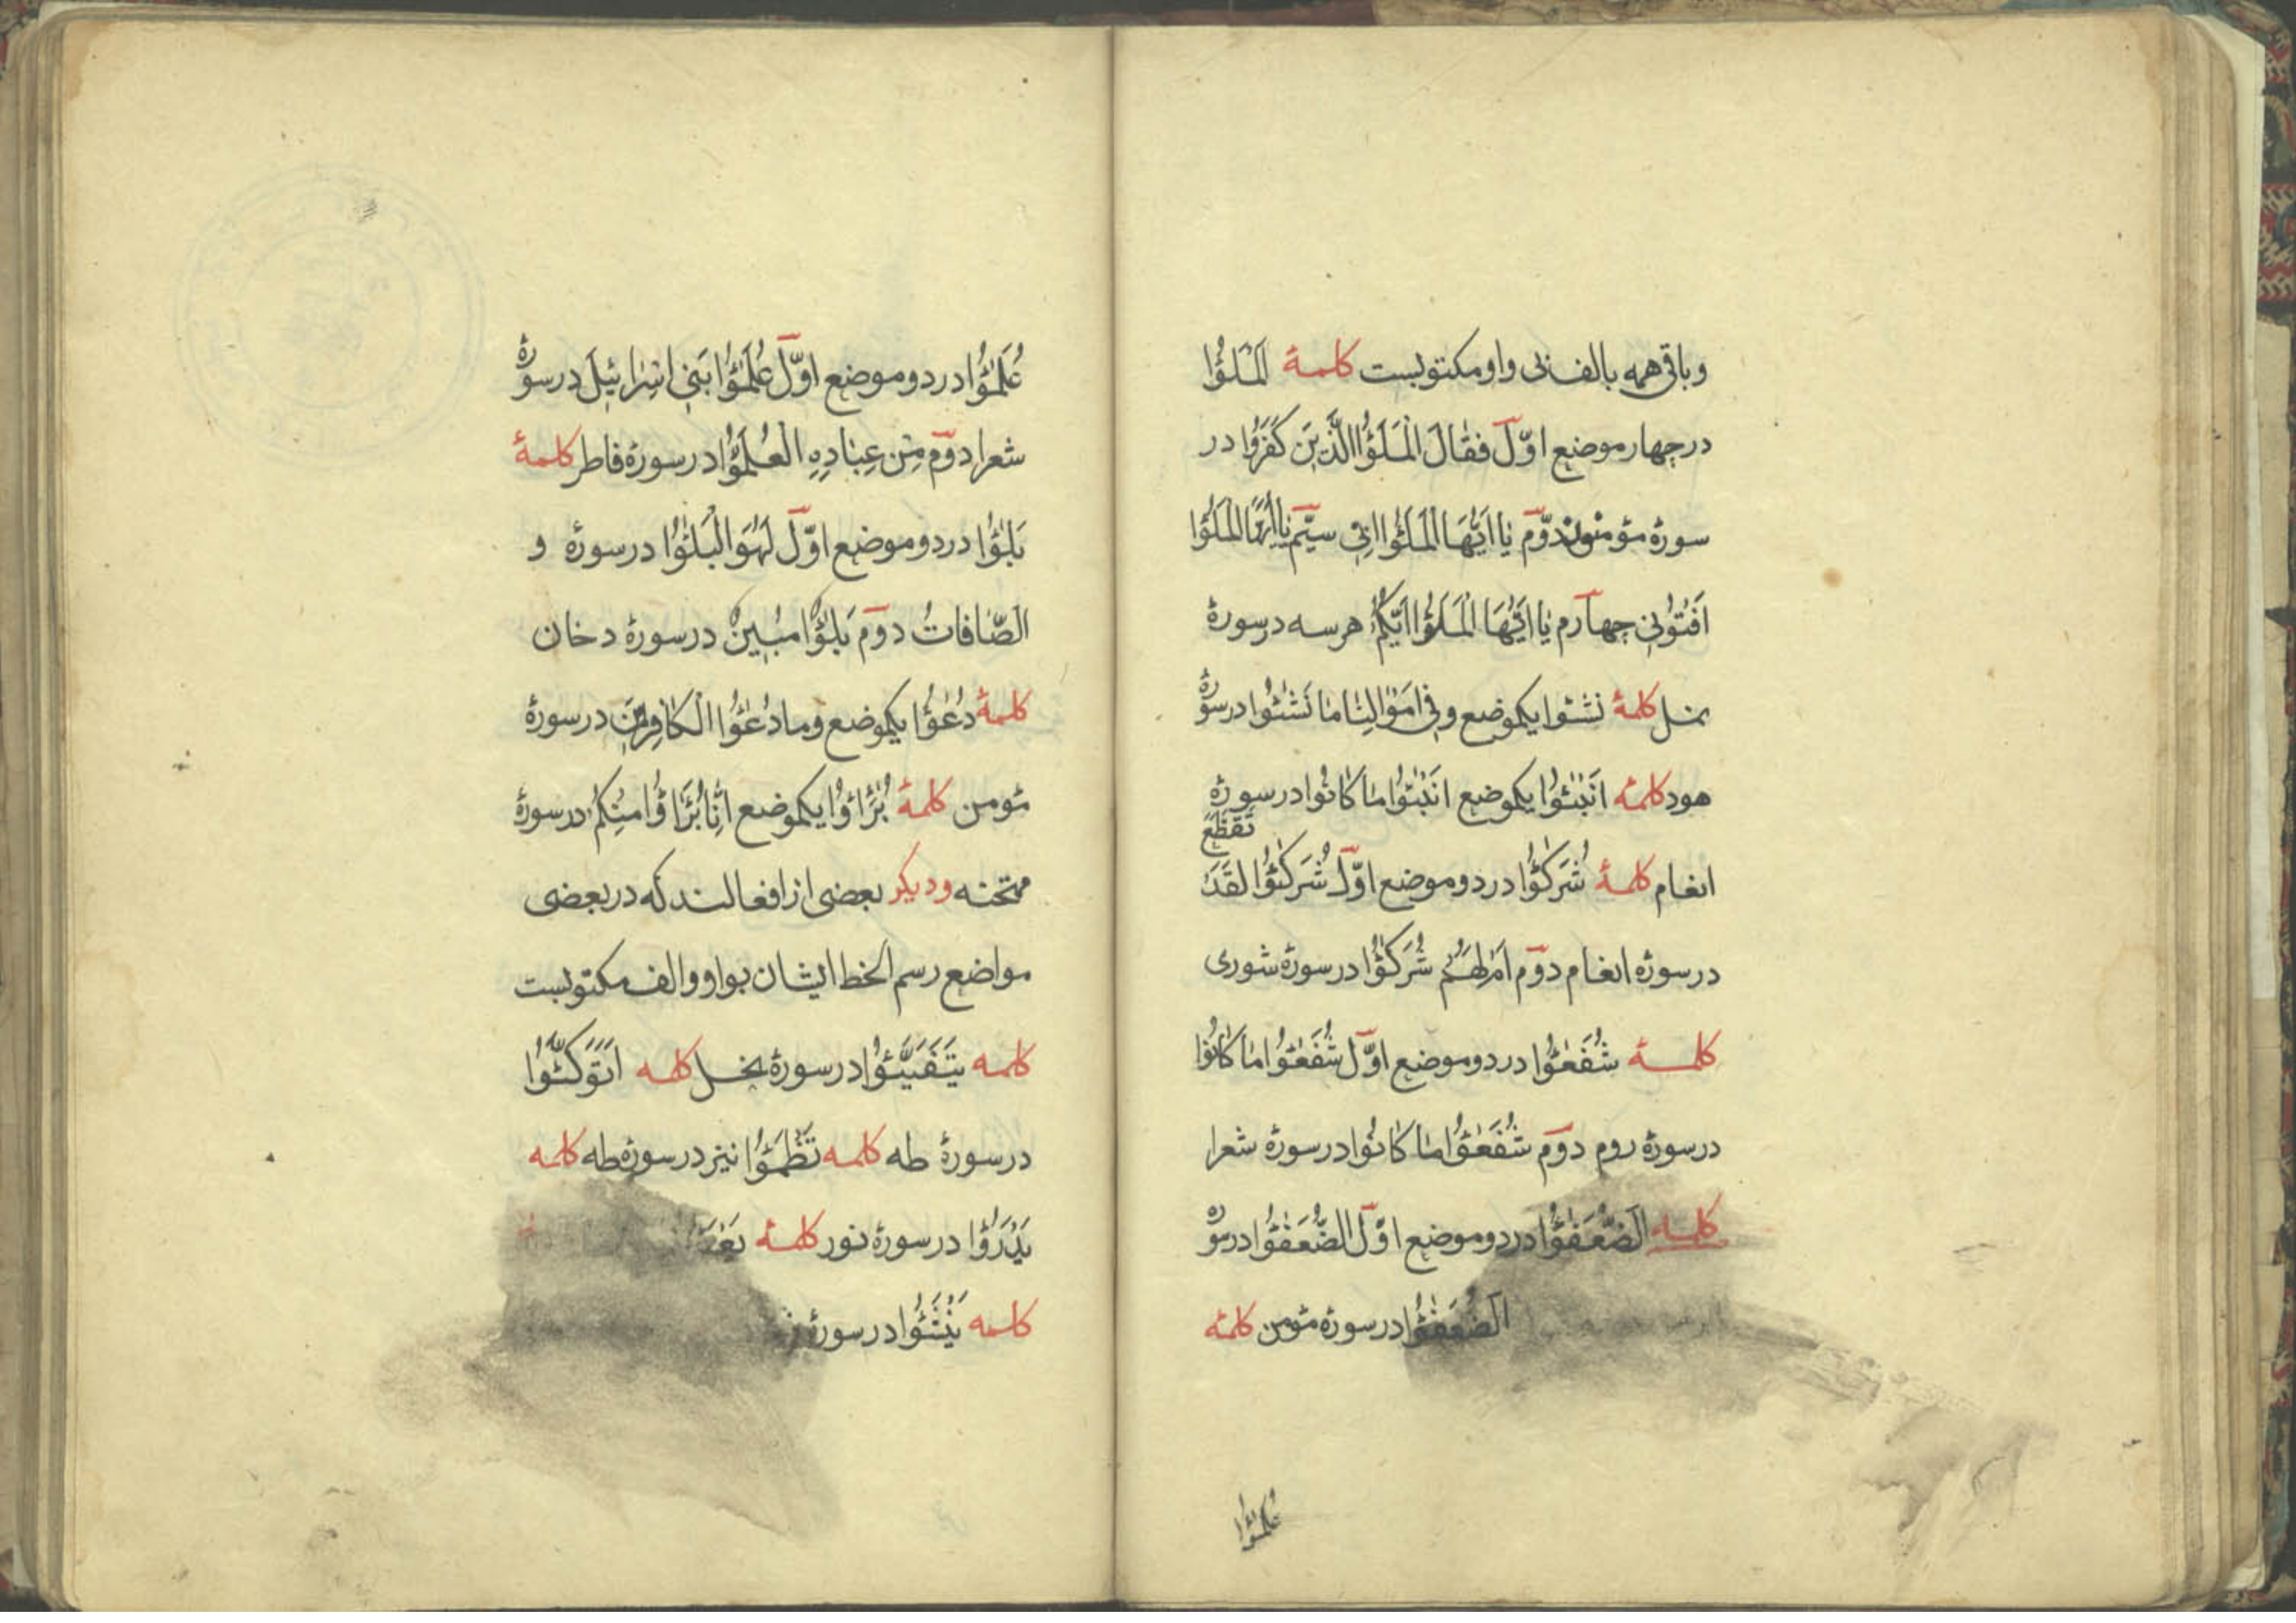 وباقی همه بالف بی واو مکتوبست کلمهٔ اَلْمَلَؤُا
در چهار موضع اوّل فَقَالَ الْمَلَؤُا الَّذِینَ کَفَرُوا در
سورهٔ مؤمنون دوّم یٰا اَیُّهَا الْمَلَؤُا اِنّی سیّم یٰا اَیُّهَا الْمَلَؤُا
اَفْتُونی چهارم یٰا اَیُّهَا الْمَلَؤُا اَیُّکُمْ هر سه در سورهٔ
نمل کلمهٔ نَشٰؤُا یکموضع و فی اَمْوٰالِنٰا مٰا نَشٰؤُا در سورهٔ
هود کلمهٔ اَنْبٰؤُا یکموضع اَنْبٰؤُا مٰا کٰانُوا در سورهٔ
انعام کلمهٔ شُرَکٰؤُا در دو موضع اوّل شُرَکٰؤُا لَقَدْ تَقَطَّعَ
در سورهٔ انعام دوّم اَمْ لَهُمْ شُرَکٰؤُا در سورهٔ شوری
کلمهٔ شُفَعٰؤُا در دو موضع اوّل شُفَعٰؤُا مٰا کٰانُوا
در سورهٔ روم دوّم شُفَعٰؤُا مٰا کٰانُوا در سورهٔ شعرا
کلمه اَلضُّعَفٰؤُا در دو موضع اوّل الضُّعَفٰؤُا در سورهٔ
اَلضُّعَفٰؤُا در سورهٔ مؤمن کلمهٔ
عُلَمٰؤُا
عُلَمٰؤُا در دو موضع اوّل عُلَمٰؤُا بَنی اِسْرٰائیلَ در سورهٔ
شعرا دوّم مِنْ عِبٰادِهِ الْعُلَمٰؤُا در سورهٔ فاطر کلمهٔ
بَلٰؤُا در دو موضع اوّل لَهُوَ الْبَلٰؤُا در سورهٔ و
الصّٰافاتُ دوّم بَلٰؤُا مُبینٌ در سورهٔ دخان
کلمهٔ دُعٰؤُا یکموضع و ما دُعٰؤُا الْکٰافِرینَ در سورهٔ
مؤمن کلمهٔ بُرَاؤُا یکموضع اِنّٰا بُرَاؤُا مِنْکُمْ در سورهٔ
ممتحنه و دیکر بعضی از افعالند که در بعضی
مواضع رسم الخط ایشان بواو و الف مکتوبست
کلمه یَتَفَیَّؤُا در سورهٔ نحل کلمه اَتَوَکَّؤُا
در سورهٔ طه کلمه تَظْمَؤُا نیز در سورهٔ طه کلمه
یَدْرَؤُا در سورهٔ نور کلمهٔ
کلمه یُنَشَّؤُا در سورهٔ